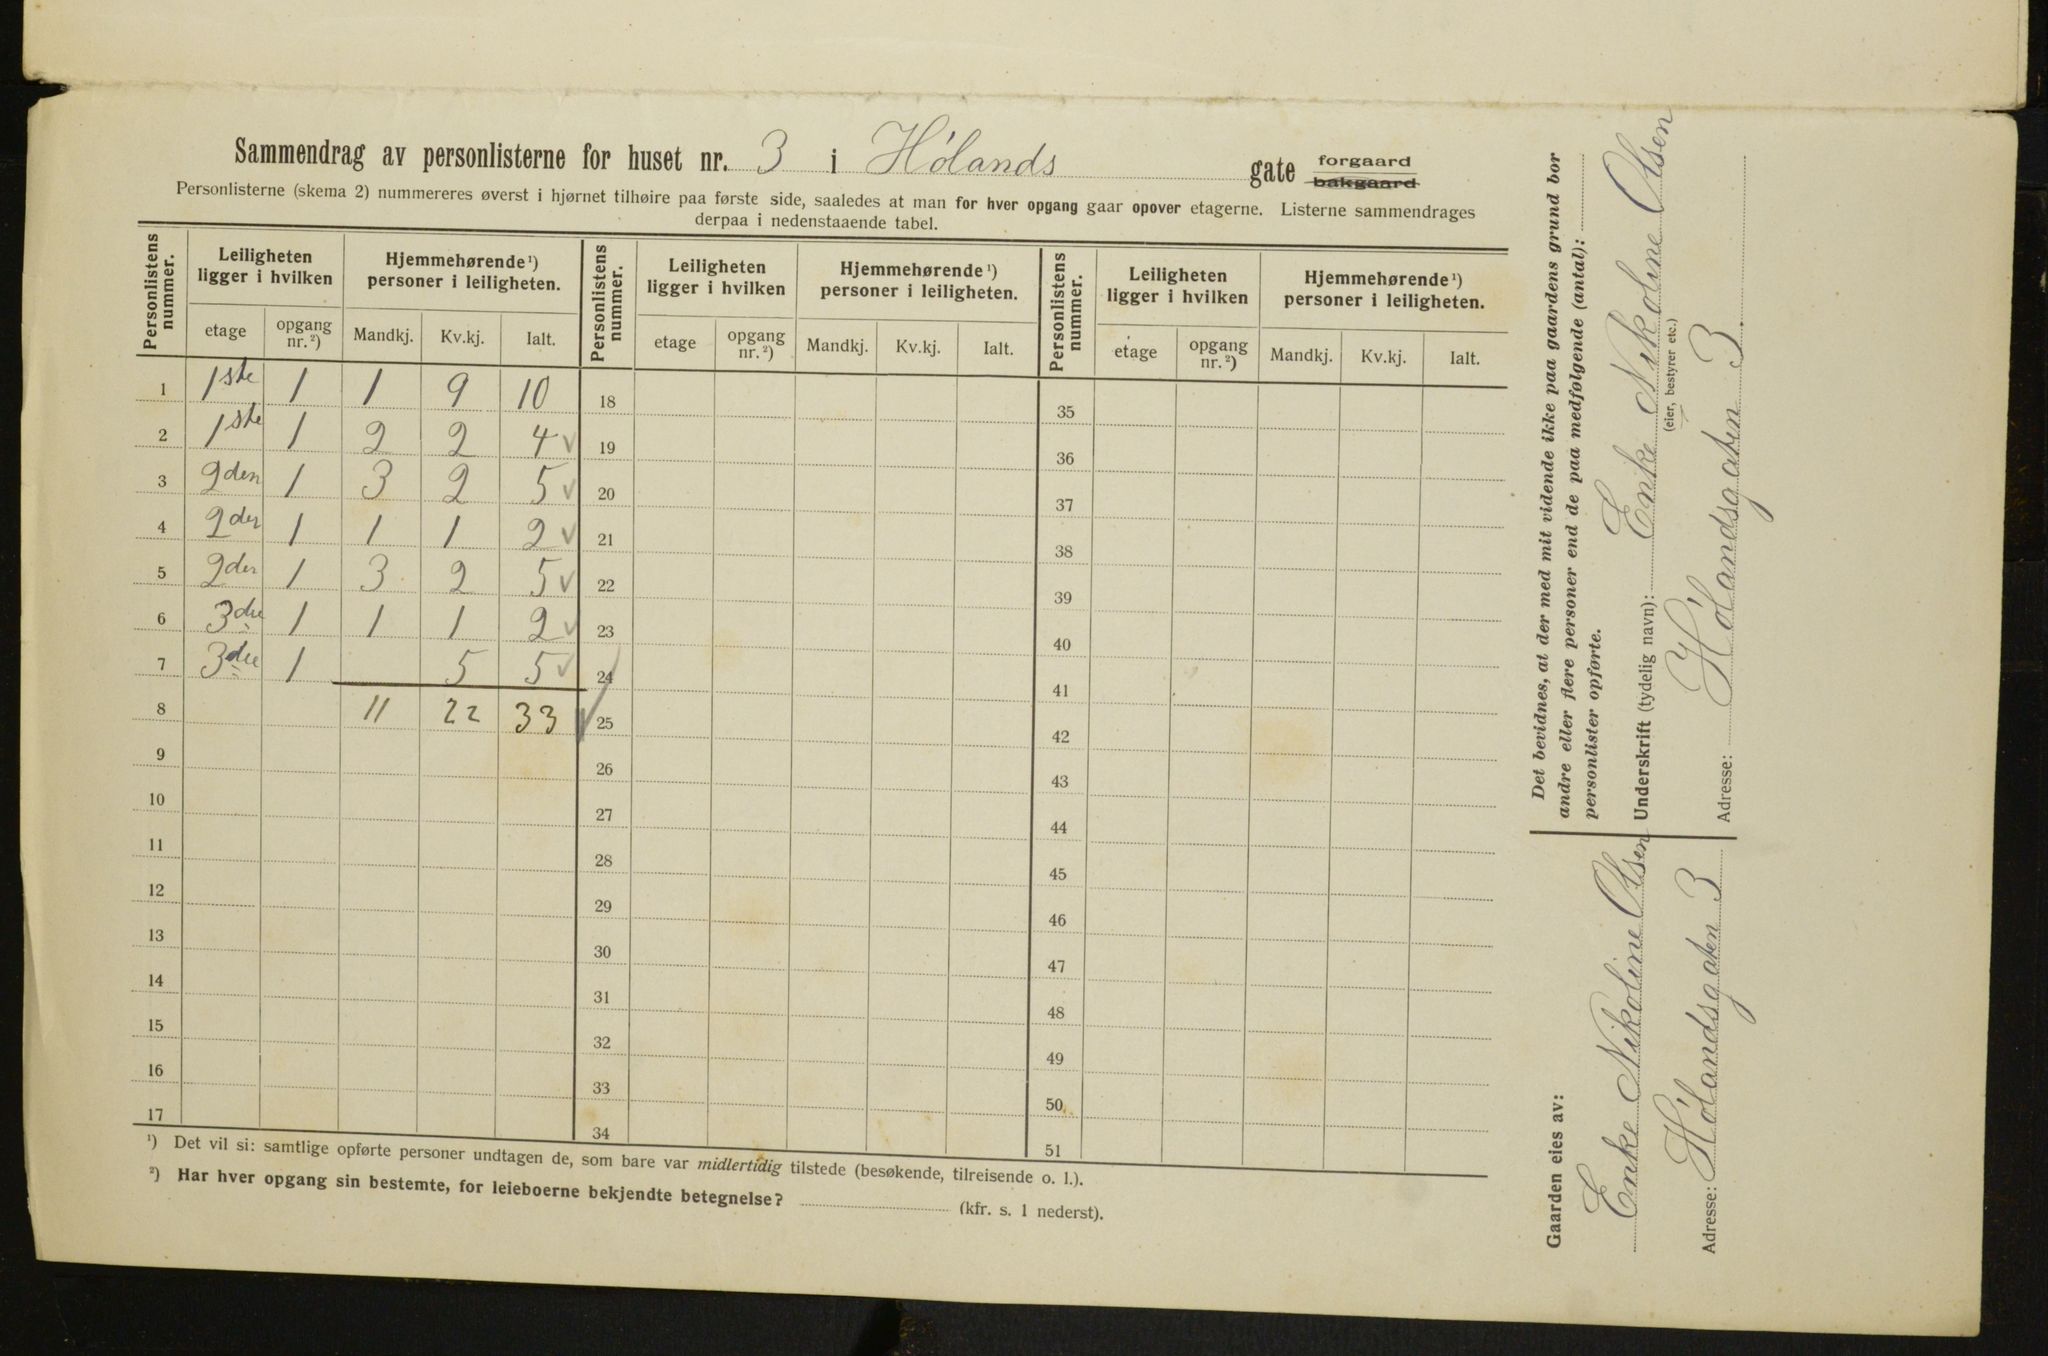 Sammendrag av personlisterne for huset nr. 3 i Hólands gate forgaard bakgaard
Personlisterne (skema 2) nummereres øverst i hjørnet tilhøire paa første side, saaledes at man for hver opgang gaar opover etagerne. Listerne sammendrages
derpaa i nedenstaaende tabel.
Personlistens nummer. Leiligheten ligger i hvilken Hjemmehørende¹) personer i leiligheten. Personlistens nummer. Leiligheten ligger i hvilken Hjemmehørende¹) personer i leiligheten. Personlistens nummer. Leiligheten ligger i hvilken Hjemmehørende¹) personer i leiligheten.
etage opgang nr.²) Mandkj. Kv.kj. Ialt. etage opgang nr.²) Mandkj. Kv.kj. Ialt. etage opgang nr.²) Mandkj. Kv.kj. Ialt.
1 1ste 1 1 9 10 18 35
2 1ste 1 2 2 4 ✓ 19 36
3 2den 1 3 2 5 ✓ 20 37
4 2den 1 1 1 2 ✓ 21 38
5 2den 1 3 2 5 ✓ 22 39
6 3die 1 1 1 2 ✓ 23 40
7 3die 1 5 5 ✓ 24 41
8 11 22 33 ✓ 25 42
9 26 43
10 27 44
11 28 45
12 29 46
13 30 47
14 31 48
15 32 49
16 33 50
17 34 51
¹) Det vil si: samtlige opførte personer undtagen de, som bare var midlertidig tilstede (besøkende, tilreisende o. l.).
²) Har hver opgang sin bestemte, for leieboerne bekjendte betegnelse? (kfr. s. 1 nederst).
Det bevidnes, at der med mit vidende ikke paa gaardens grund bor
andre eller flere personer end de paa medfølgende (antal):
personlister opførte.
Underskrift (tydelig navn): Enke Nikoline Olsen
(eier, bestyrer etc.)
Adresse: Hólandsgaten 3.
Gaarden eies av:
Enke Nikoline Olsen
Adresse: Hólandsgaten 3